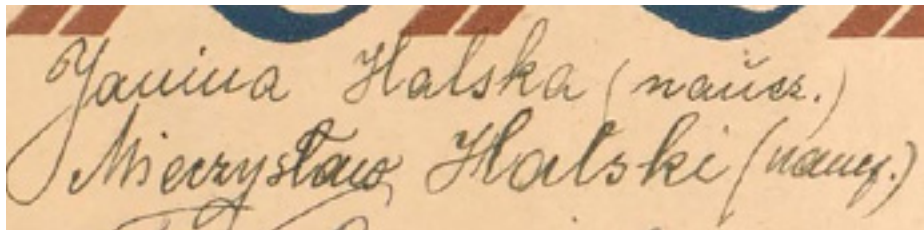 Janina Halska (naucz.)
Mieczysław Halski (naucz.)